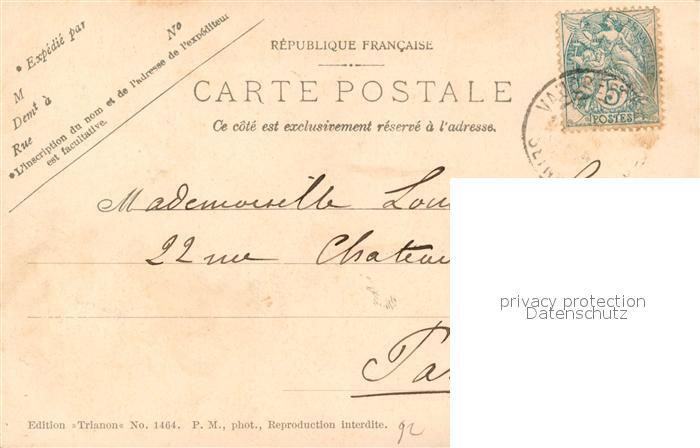 * Expédié par
No
M
Demt à
Rue
* L'inscription du nom et de l'adresse de l'expéditeur
est facultative.
RÉPUBLIQUE FRANÇAISE
CARTE POSTALE
Ce côté est exclusivement réservé à l'adresse.
5
POSTES
Mademoiselle
22 rue
privacy protection
Datenschutz
Edition »Trianon« No. 1464. P. M., phot., Reproduction interdite.
92